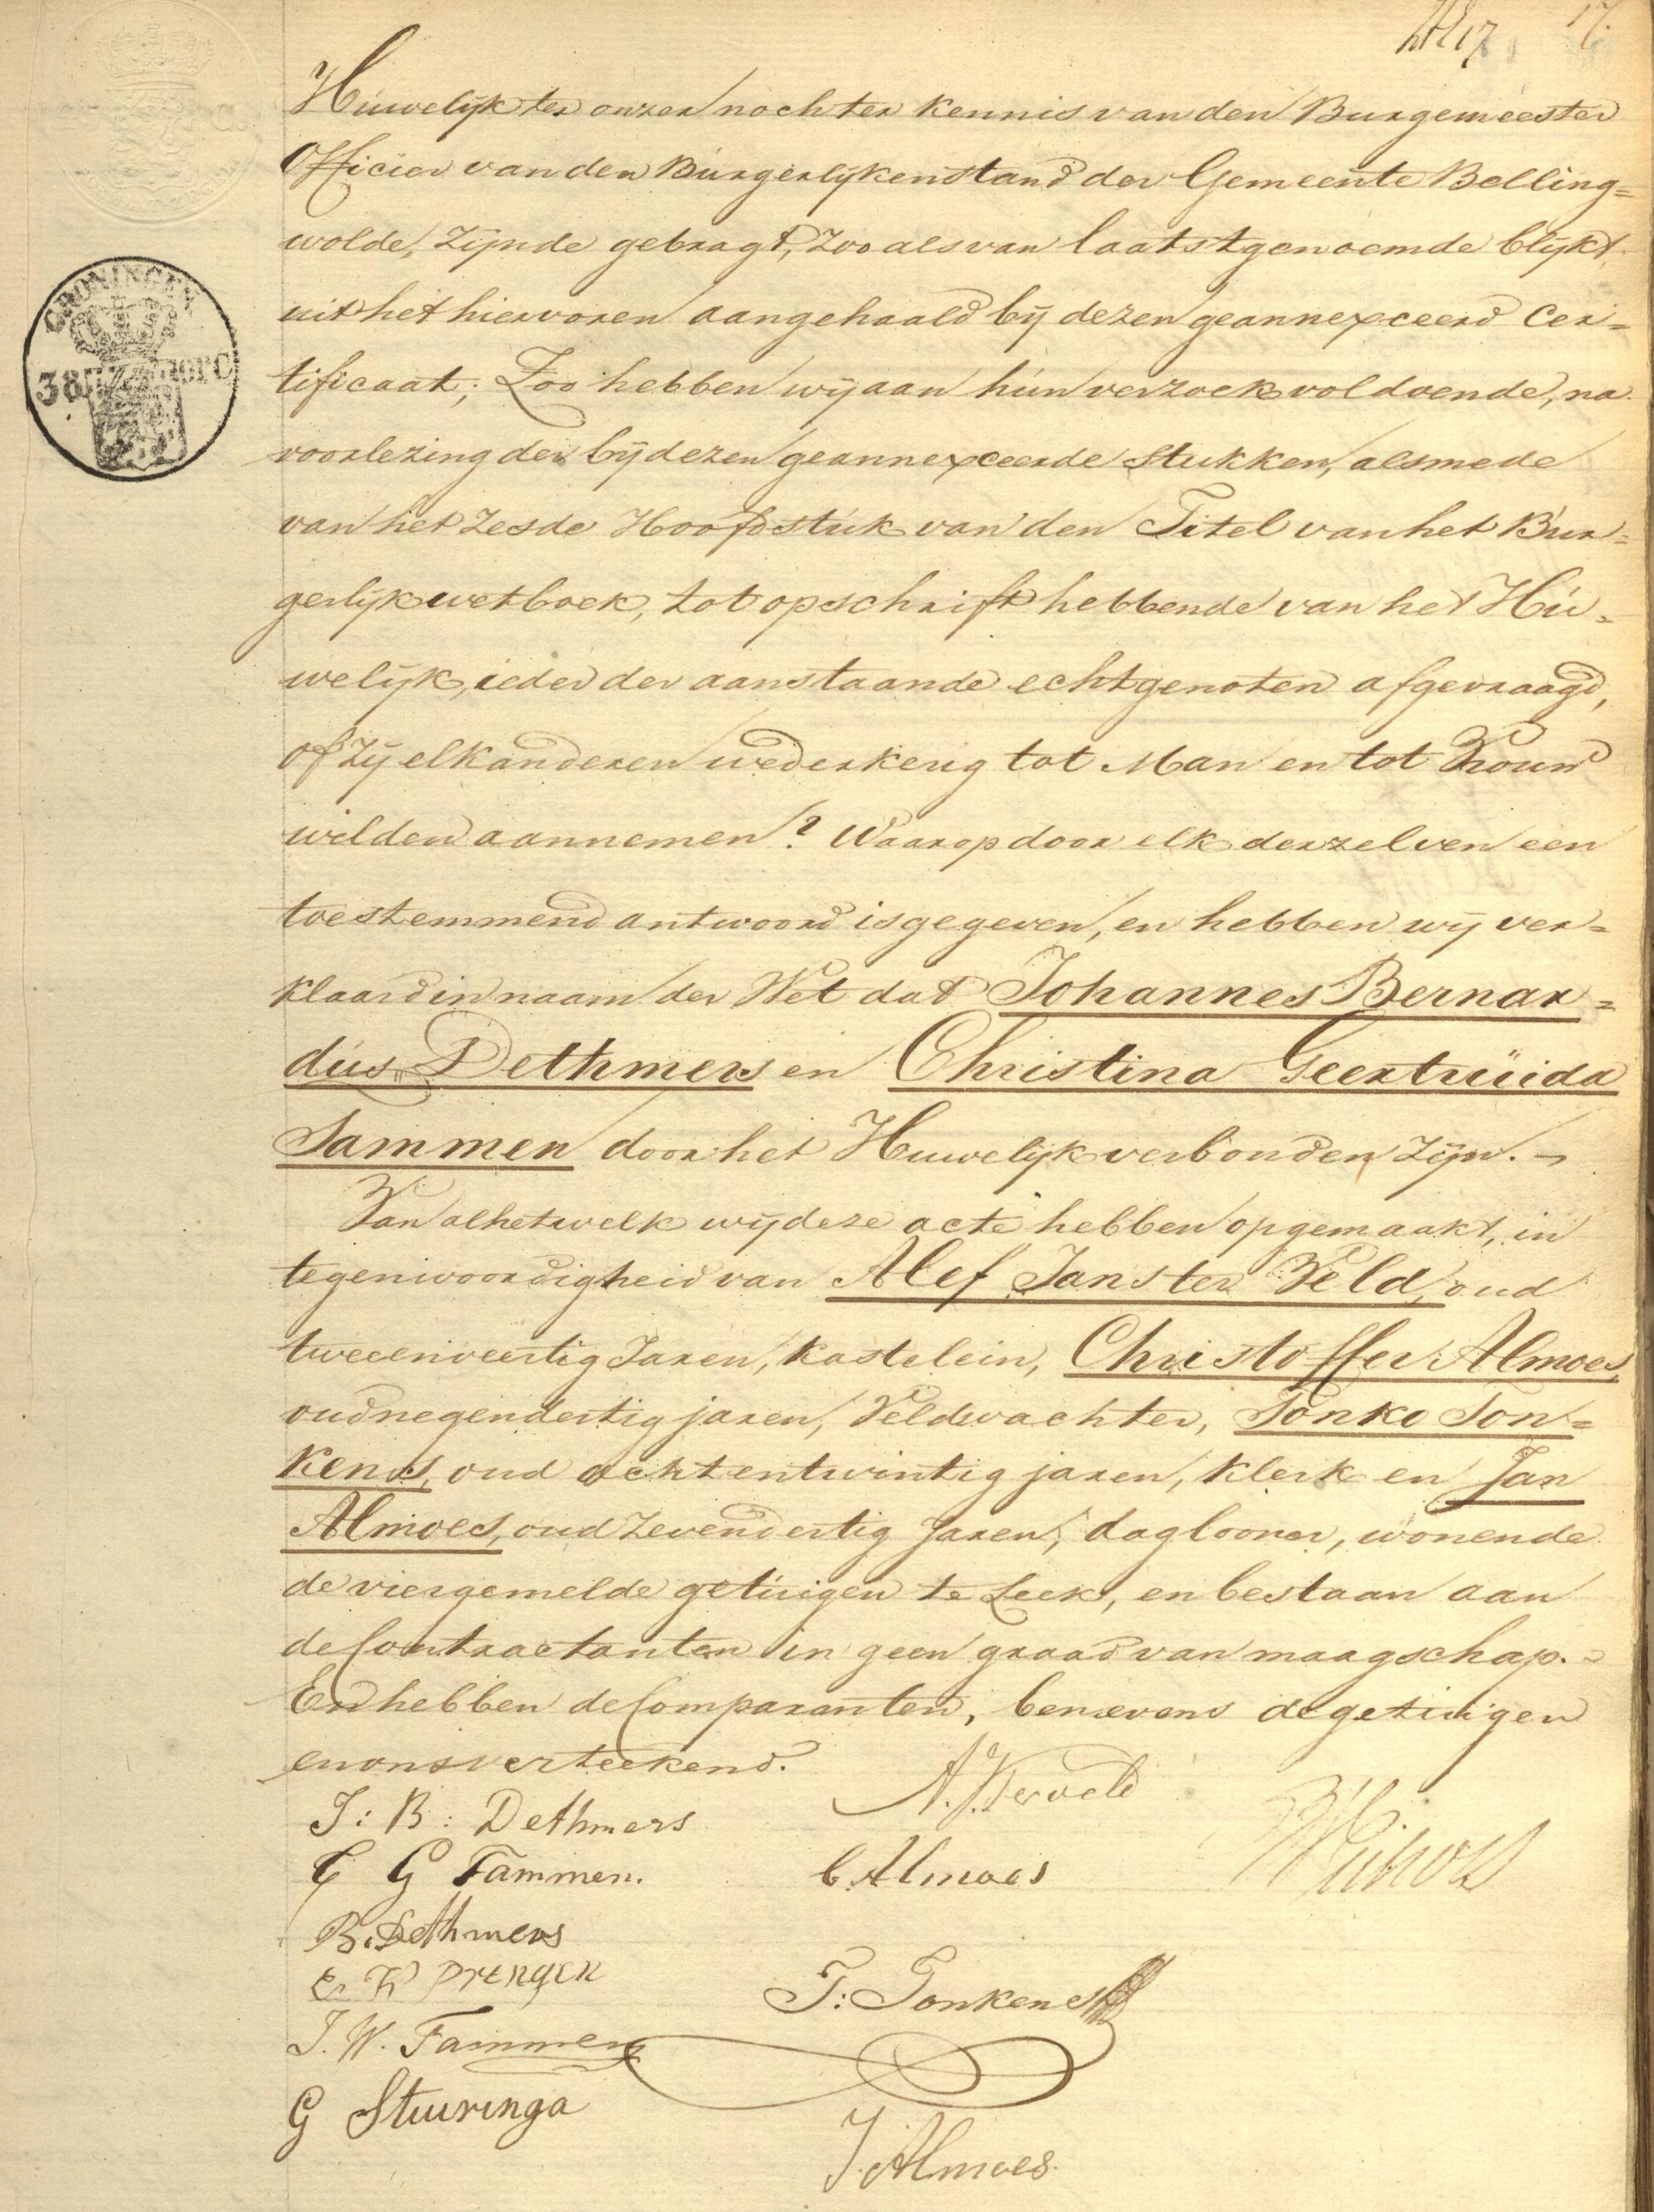 17.
Huwelijk ter onzer noch ter kennis van den Burgemeester
Officier van den Burgerlijkenstand der Gemeente Belling=
wolde, zijnde gebragt, zoo als van laatstgenoemde blijkt,
uit het hiervoren aangehaald bij dezen geannexceerd Cer=
tificaat; Zoo hebben wij aan hun verzoek voldoende, na
voorlezing der bij dezen geannexceerde Stukken, alsmede
van het Zesde Hoofdstuk van den Titel van het Bur=
gerlijk wetboek, tot opschrift hebbende van het Hu=
welijk, ieder der aanstaande echtgenoten afgevraagd,
of zij elkanderen wederkerig tot Man en tot Vrouw
wilden aannemen? Waarop door elk derzelven een
toestemmend antwoord is gegeven, en hebben wij ver=
klaard in naam der Wet dat Johannes Bernar=
dus Dethmers en Christina Geertruida
Tammen door het Huwelijk verbonden zijn.
Van al hetwelk wij deze acte hebben opgemaakt, in
tegenwoordigheid van Alef Jans ter Veld, oud
tweeenveertig Jaren, kastelein, Christoffer Almoes,
oud negendertig jaren, Veldwachter, Tonko Ton=
kens, oud achtentwintig jaren, klerk en Jan
Almoes, oud zevendertig Jaren, daglooner, wonende
de vier gemelde getuigen te Leek, en bestaan aan
de Contractanten in geen graad van maagschap.
En hebben de Comparanten, benevens de getuigen
en ons verteekend.
J: B: Dethmers
A. J. Terveld
C G Tammen.
C Almoes
B. Dethmers
E. W Prengen
T: Tonkens
J. W. Tammen
G Stuuringa
J. Almoes.
GRONINGEN
38